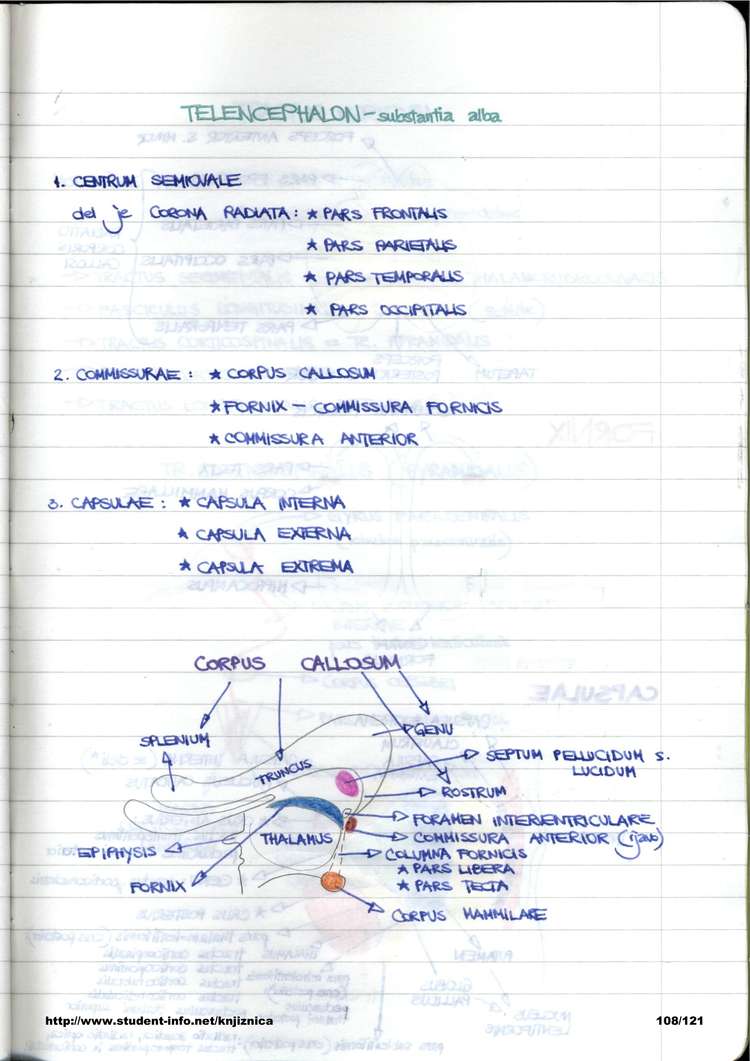 TELENCEPHALON - substantia alba
1. CENTRUM SEMIOVALE
del je CORONA RADIATA: * PARS FRONTALIS
* PARS PARIETALIS
* PARS TEMPORALIS
* PARS OCCIPITALIS
2. COMMISSURAE: * CORPUS CALLOSUM
* FORNIX - COMMISSURA FORNICIS
* COMMISSURA ANTERIOR
3. CAPSULAE: * CAPSULA INTERNA
* CAPSULA EXTERNA
* CAPSULA EXTREMA
CORPUS CALLOSUM
GENU
SPLENIUM
SEPTUM PELLUCIDUM S.
LUCIDUM
TRUNCUS
ROSTRUM
FORAMEN INTERVENTRICULARE
THALAMUS
COMMISSURA ANTERIOR (rjavo)
EPIPHYSIS
COLUMNA FORNICIS
* PARS LIBERA
FORNIX
* PARS TECTA
CORPUS MAMMILARE
http://www.student-info.net/knjiznica
108/121